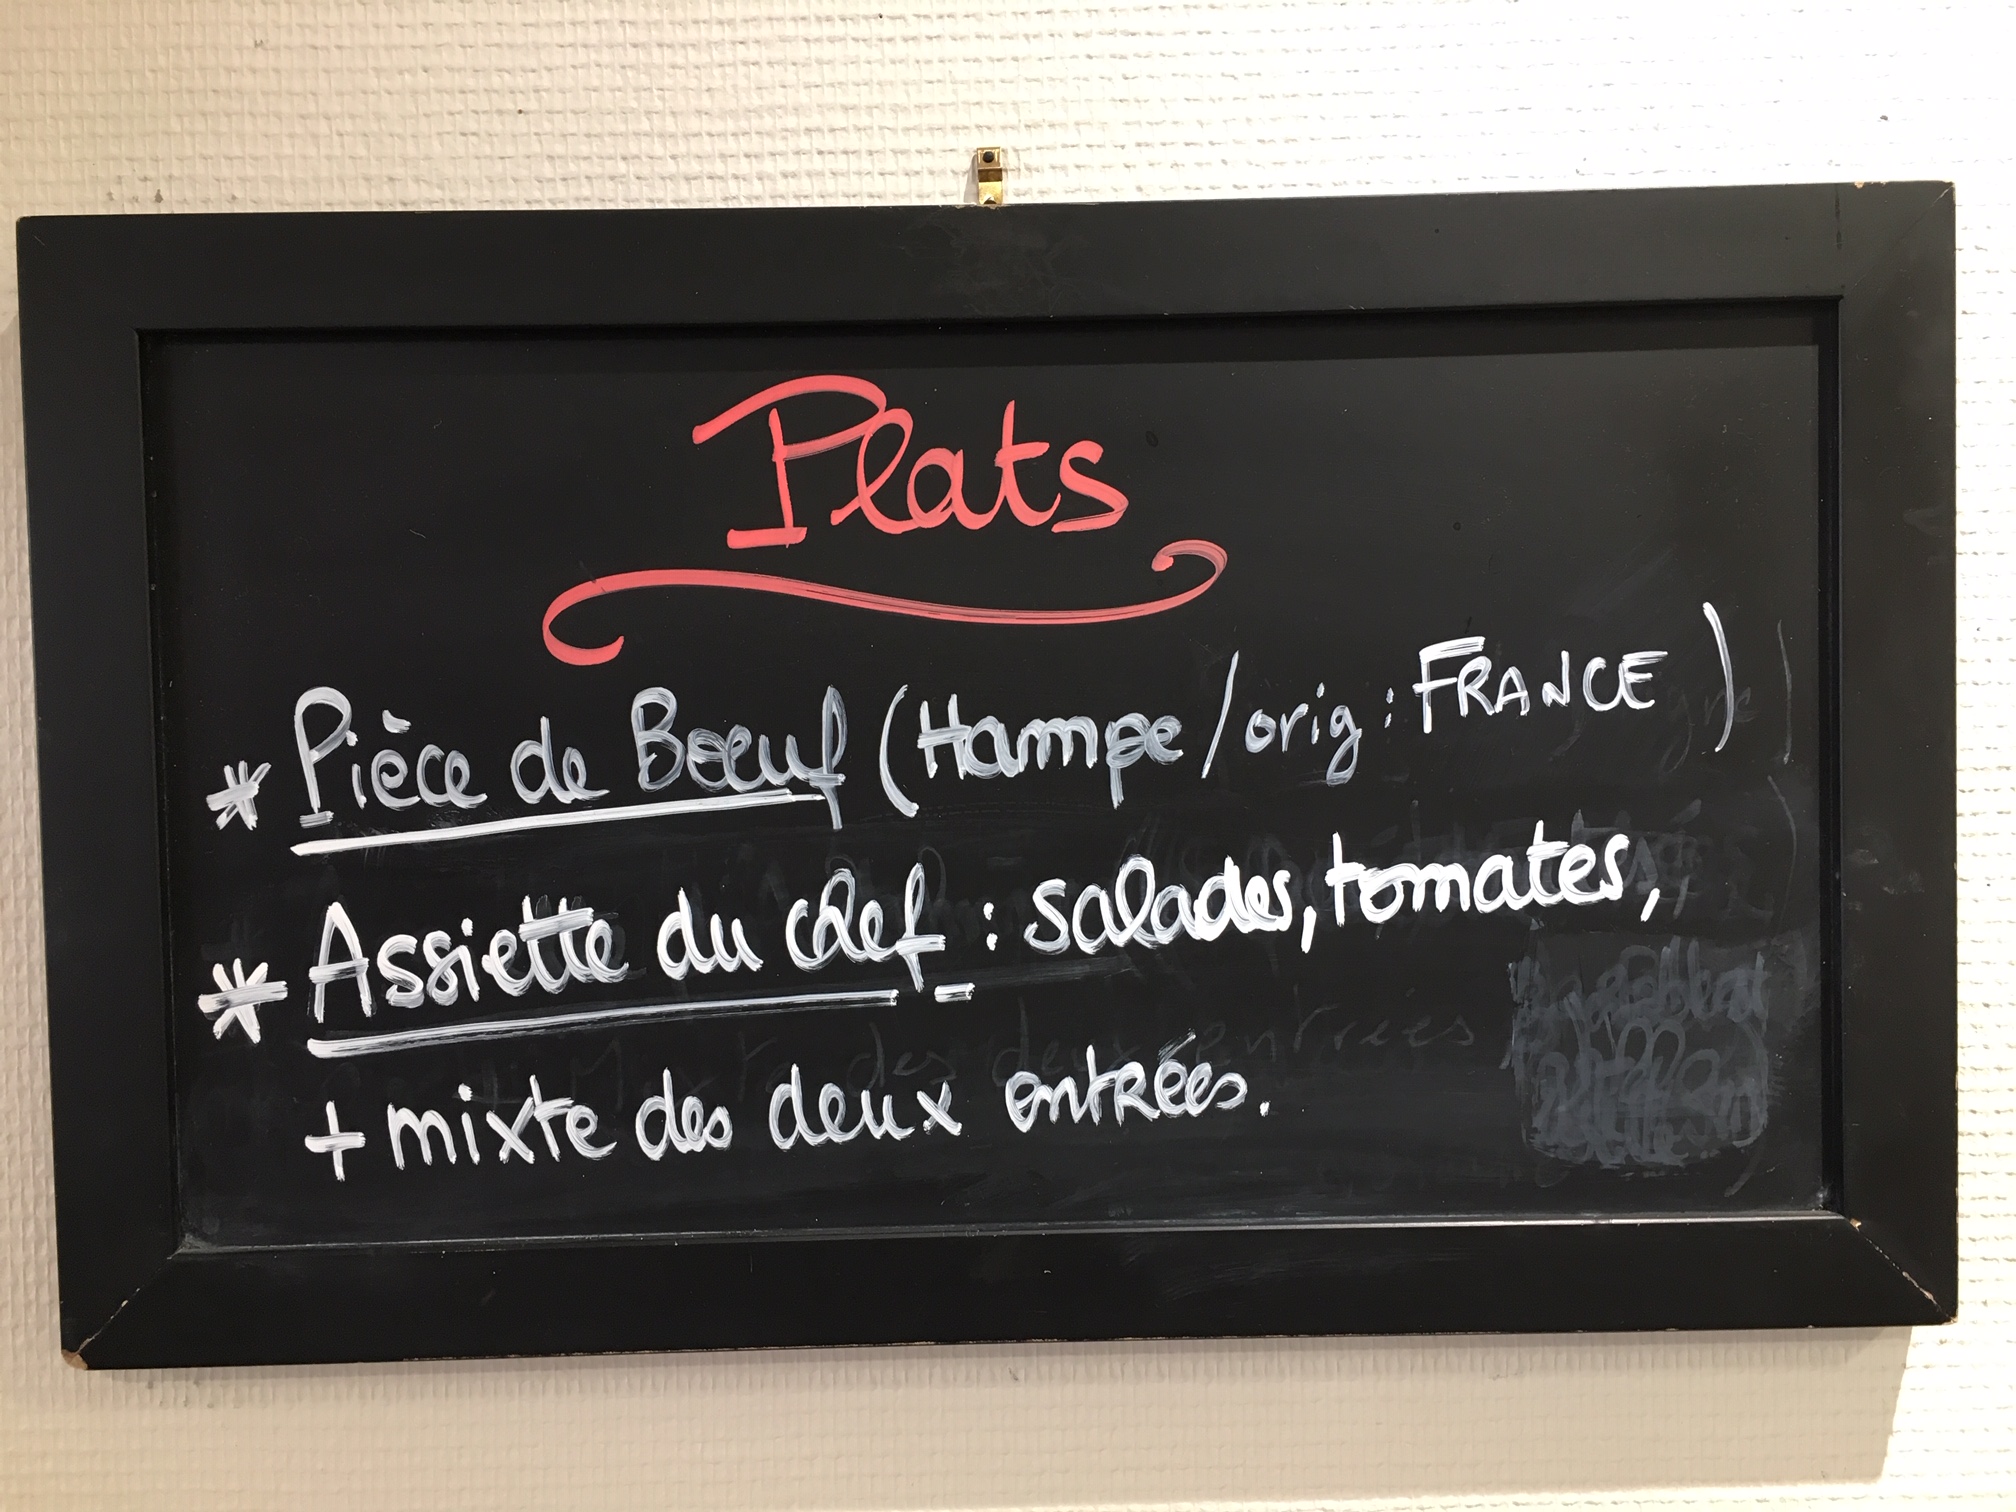 Plats
* Pièce de Bœuf (Hampe / orig : FRANCE )
* Assiette du chef : salades, tomates,
+ mixte des deux entrées.